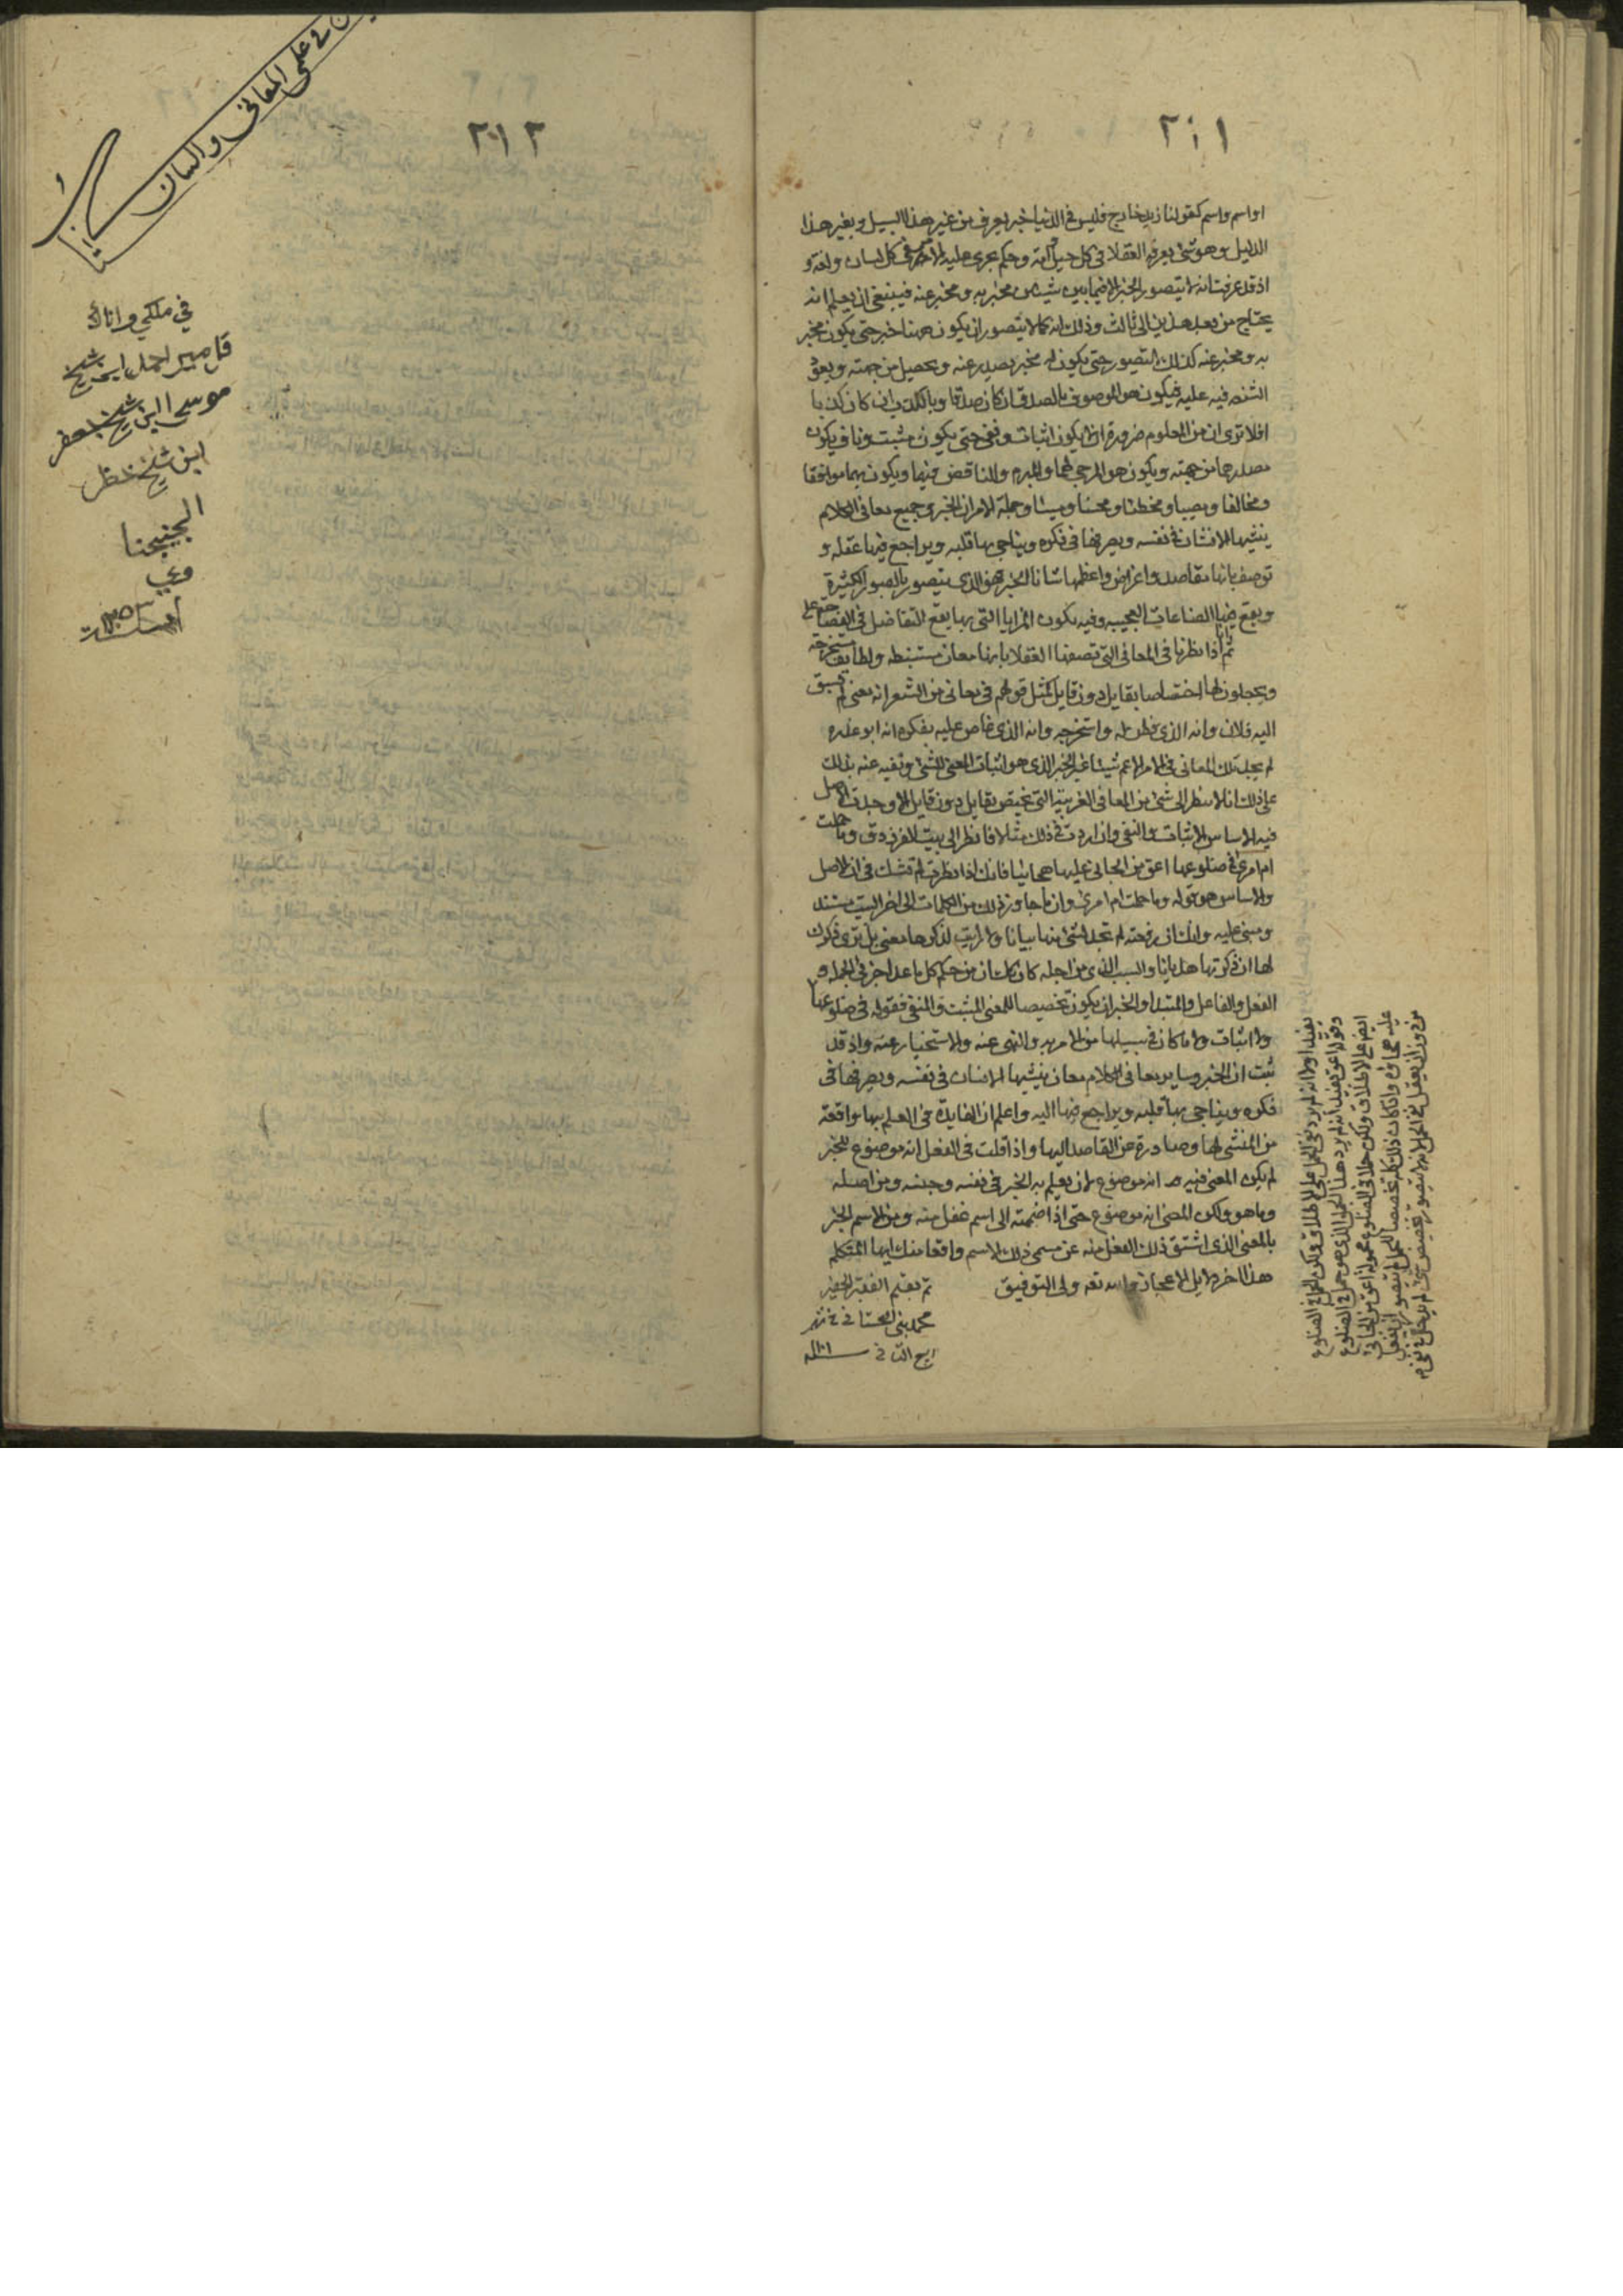 ٢١١
او اسم واسم كقولنا زيد خارج فليس في الدنيا خبر يعرف من غير هذا السبيل وبغير هذا
الدليل وهو شئ يعرفه العقلا في كل جيل وامة وحكم يجرى عليه الامر في كل لسان ولغة و
اذ قد عرفت انه لا يتصور الخبر الا فيما بين شيئين مخبر به ومخبر عنه فينبغي ان يعلم انه
يحتاج من بعد هذين الى ثالث وذلك انه كما لا يتصور ان يكون ههنا خبر حتى يكون مخبر
به ومخبر عنه كذلك لا يتصور حتى يكون له مخبر يصدر عنه ويحصل من جهته ويعود
فيه عليه فيكون هو الموصوف بالصدق ان كان صدقا وبالكذب ان كان كذبا
افلا ترى ان من المعلوم ضرورة انه لا يكون اثبات ونفي حتى يكون مثبت وناف يكون
مصدرهما من جهته ويكون هو المزجي لهما والمبرم والناقض فيهما ويكون بهما موافقا
ومخالفا ومصيبا ومخطئا ومحسنا ومسيئا وجملة الامر ان الخبر وجميع معاني الكلام
ينشيها الانسان في نفسه ويصرفها في فكره ويناجي بها قلبه ويراجع فيها عقله و
توصف بانها مقاصد واغراض واعظمها شانا الخبر فهو الذي يتصور بالصور الكثيرة
ويقع فيها الصناعات العجيبه وفيه يكون المزايا التي بها يقع التفاضل في الفصاحة على
ثم انا اذا نظرنا في المعاني التي تصفها العقلا بانها معان مستنبطه ولطايف مستخرجة
ويجعلون لها اختصاصا بقايل دون قايل كمثل قولهم في معاني من الشعر انه معنى لم يسبق
اليه فلان وانه الذي فطن له واستخرجه وانه الذي غاص عليه بفكره انه ابو عذره
لم يجد تلك المعاني في الامر الاعم شيئا غير الخبر الذي هو اثبات المعنى للشئ ونفيه عنه يدلك
على ذلك انا لا ننظر الى شئ من المعاني الغريبة التي تختص بقايل دون قايل الا وجدت الاصل
فيه والاساس الاثبات والنفي وان اردت في ذلك مثلا فانظر الى بيت الفرزدق وما حملت
ام امرئ في ضلوعها اعق من الجاني عليها هجائيا فانك اذا نظرت لم تشك في ان الاصل
والاساس هو قوله وما حملت ام امرئ وان ما جاوز ذلك من الكلمات الى اخر البيت مستند
ومبني عليه وانك ان رفعته لم تجد لشئ منها بيانا ولا رايت لذكرها معنى بل ترى ذكرك
لها ان ذكرتها هذيانا والسبب الذي من اجله كان كذلك ان من حكم كل ما عدا جزئي الجمله
الفعل والفاعل والمبتدا والخبر ان يكون تخصيصا للمعنى المثبت والمنفي فقوله في ضلوعها
ولا اثبات ولا ما كان في سبيلهما من الامر به والنهي عنه والاستخبار عنه واذ قد
ثبت ان الخبر وساير معاني الكلام معان ينشيها الانسان في نفسه ويصرفها في
فكره ويناجي بها قلبه ويراجع فيها اليه واعلم ان الفايدة في العلم بها واقعة
من المنشى لها وصادرة عن القاصد اليها واذا قلت في الفعل انه موضوع للخبر
لم يكن المعنى فيه انه موضوع لان يعلم به الخبر في نفسه وجنسه ومن اصله
وما هو ولكن المعنى انه موضوع حتى اذا ضممته الى اسم عقل منه ومن الاسم الخبر
بالمعنى الذي اشتق ذلك الفعل منه عن مسمى ذلك الاسم واقعا منك ايها المتكلم
هذا اخر دلايل الاعجاز والله تعه ولي التوفيق
تم بقلم الفقير الحقير
محمد في شهر
ربيع الثاني سنة
يفيد اولا انه لم يرد نفي الحمل على الاطلاق ولكن الحمل في الضلوع
وقوله اعق يفيد انه لم يرد هذا الحمل الذي هو حمل في الضلوع
ايضا على الاطلاق ولكن حملا في الضلوع محموله اعق من الجاني
عليها هجاؤه واذا كان ذلك كله تخصيصا للحمل لم يتصور ان يعقل
من دون ان يعقل نفي الحمل لانه لا يتصور تخصيص شئ لم يدخل في نفي
٢١٢
كتاب
في علمي المعاني والبيان
في ملكي وانا
ابن شيخ
موسى ابن شيخ جعفر
ابن شيخ خضر